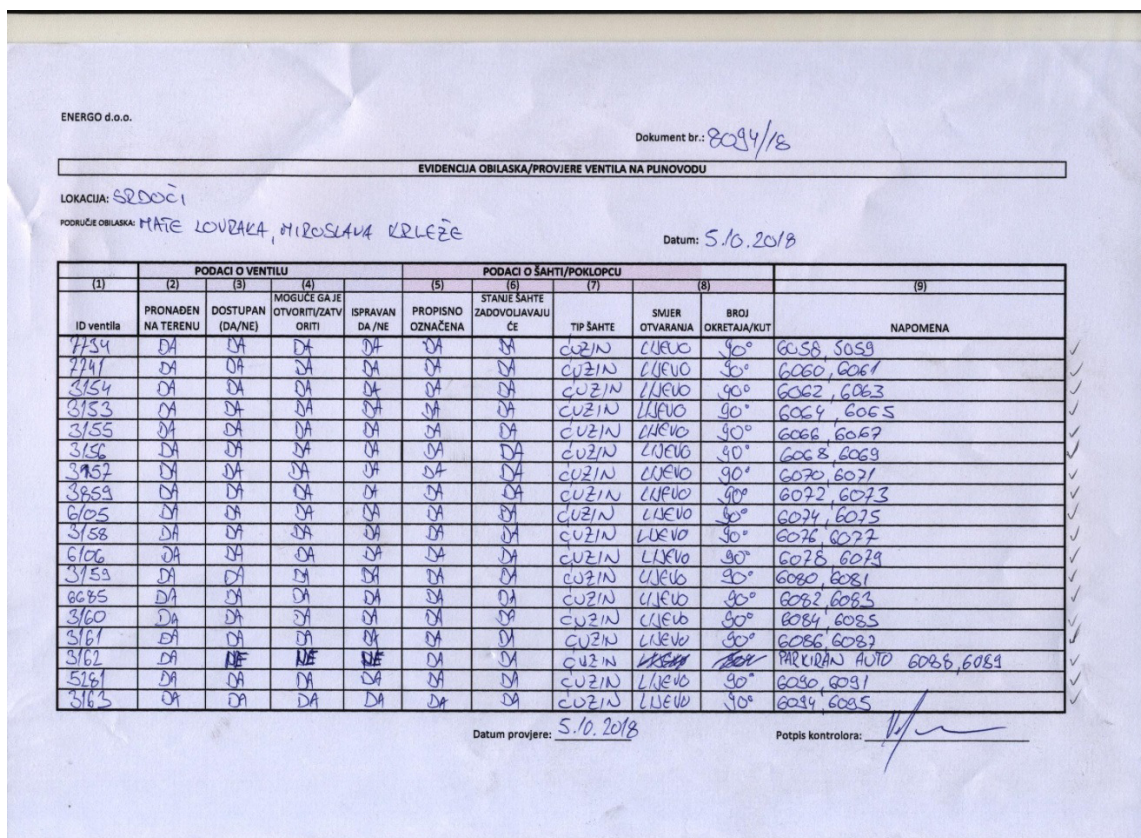 ENERGO d.o.o.
Dokument br.: 8094/18
EVIDENCIJA OBILASKA/PROVJERE VENTILA NA PLINOVODU
LOKACIJA: SRDOČI
PODRUČJE OBILASKA: MATE LOVRAKA, MIROSLAVA KRLEŽE
Datum: 5.10.2018
PODACI O VENTILU PODACI O ŠAHTI/POKLOPCU
(1) (2) (3) (4) (5) (6) (7) (8) (9)
ID ventila PRONAĐEN NA TERENU DOSTUPAN (DA/NE) MOGUĆE GA JE OTVORITI/ZATVORITI ISPRAVAN DA/NE PROPISNO OZNAČENA STANJE ŠAHTE ZADOVOLJAVAJUĆE TIP ŠAHTE SMJER OTVARANJA BROJ OKRETAJA/KUT NAPOMENA
DA DA DA DA DA DA CUZIN LIJEVO 90° 6058, 5059
DA DA DA DA DA DA CUZIN LIJEVO 90° 6060, 6061
3154 DA DA DA DA DA DA CUZIN LIJEVO 90° 6062, 6063
3153 DA DA DA DA DA DA CUZIN LIJEVO 90° 6064, 6065
3155 DA DA DA DA DA DA CUZIN LIJEVO 90° 6066, 6067
3156 DA DA DA DA DA DA CUZIN LIJEVO 90° 6068, 6069
DA DA DA DA DA DA CUZIN LIJEVO 90° 6070, 6071
3859 DA DA DA DA DA DA CUZIN LIJEVO 90° 6072, 6073
6105 DA DA DA DA DA DA CUZIN LIJEVO 90° 6074, 6075
3158 DA DA DA DA DA DA CUZIN LIJEVO 90° 6076, 6077
6106 DA DA DA DA DA DA CUZIN LIJEVO 90° 6078, 6079
3159 DA DA DA DA DA DA CUZIN LIJEVO 90° 6080, 6081
6685 DA DA DA DA DA DA CUZIN LIJEVO 90° 6082, 6083
3160 DA DA DA DA DA DA CUZIN LIJEVO 90° 6084, 6085
3161 DA DA DA DA DA DA CUZIN LIJEVO 90° 6086, 6087
3162 DA NE NE NE DA DA CUZIN PARKIRAN AUTO 6088, 6089
5281 DA DA DA DA DA DA CUZIN LIJEVO 90° 6090, 6091
3163 DA DA DA DA DA DA CUZIN LIJEVO 90° 6094, 6095
Datum provjere: 5.10.2018
Potpis kontrolora: